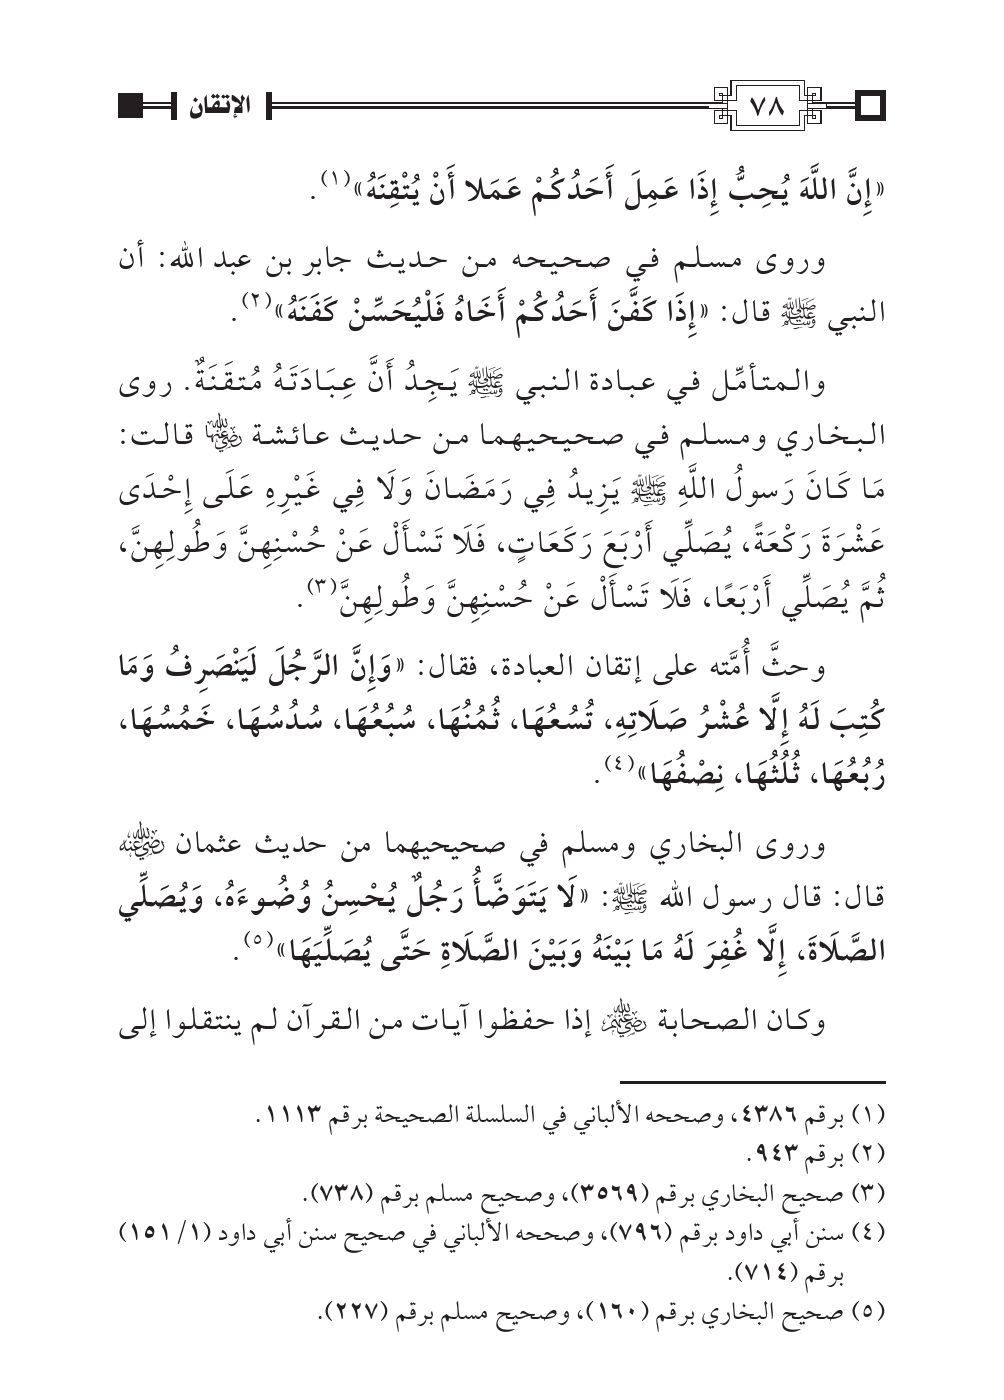 ٧٨
الإتقان
«إِنَّ اللَّهَ يُحِبُّ إِذَا عَمِلَ أَحَدُكُمْ عَمَلا أَنْ يُتْقِنَهُ»(١).
وروى مسلم في صحيحه من حديث جابر بن عبد الله: أن
النبي ﷺ قال: «إِذَا كَفَّنَ أَحَدُكُمْ أَخَاهُ فَلْيُحَسِّنْ كَفَنَهُ»(٢).
والمتأمِّل في عبادة النبي ﷺ يَجِدُ أَنَّ عِبَادَتَهُ مُتقَنَةٌ. روى
البخاري ومسلم في صحيحيهما من حديث عائشة رضي الله عنها قالت:
مَا كَانَ رَسولُ اللَّهِ ﷺ يَزِيدُ فِي رَمَضَانَ وَلَا فِي غَيْرِهِ عَلَى إِحْدَى
عَشْرَةَ رَكْعَةً، يُصَلِّي أَرْبَعَ رَكَعَاتٍ، فَلَا تَسْأَلْ عَنْ حُسْنِهِنَّ وَطُولِهِنَّ،
ثُمَّ يُصَلِّي أَرْبَعًا، فَلَا تَسْأَلْ عَنْ حُسْنِهِنَّ وَطُولِهِنَّ(٣).
وحثَّ أُمَّته على إتقان العبادة، فقال: «وَإِنَّ الرَّجُلَ لَيَنْصَرِفُ وَمَا
كُتِبَ لَهُ إِلَّا عُشْرُ صَلَاتِهِ، تُسُعُهَا، ثُمُنُهَا، سُبُعُهَا، سُدُسُهَا، خَمُسُهَا،
رُبُعُهَا، ثُلُثُهَا، نِصْفُهَا»(٤).
وروى البخاري ومسلم في صحيحيهما من حديث عثمان رضي الله عنه
قال: قال رسول الله ﷺ: «لَا يَتَوَضَّأُ رَجُلٌ يُحْسِنُ وُضُوءَهُ، وَيُصَلِّي
الصَّلَاةَ، إِلَّا غُفِرَ لَهُ مَا بَيْنَهُ وَبَيْنَ الصَّلَاةِ حَتَّى يُصَلِّيَهَا»(٥).
وكان الصحابة رضي الله عنهم إذا حفظوا آيات من القرآن لم ينتقلوا إلى
(١) برقم ٤٣٨٦، وصححه الألباني في السلسلة الصحيحة برقم ١١١٣.
(٢) برقم ٩٤٣.
(٣) صحيح البخاري برقم (٣٥٦٩)، وصحيح مسلم برقم (٧٣٨).
(٤) سنن أبي داود برقم (٧٩٦)، وصححه الألباني في صحيح سنن أبي داود (١/ ١٥١)
برقم (٧١٤).
(٥) صحيح البخاري برقم (١٦٠)، وصحيح مسلم برقم (٢٢٧).